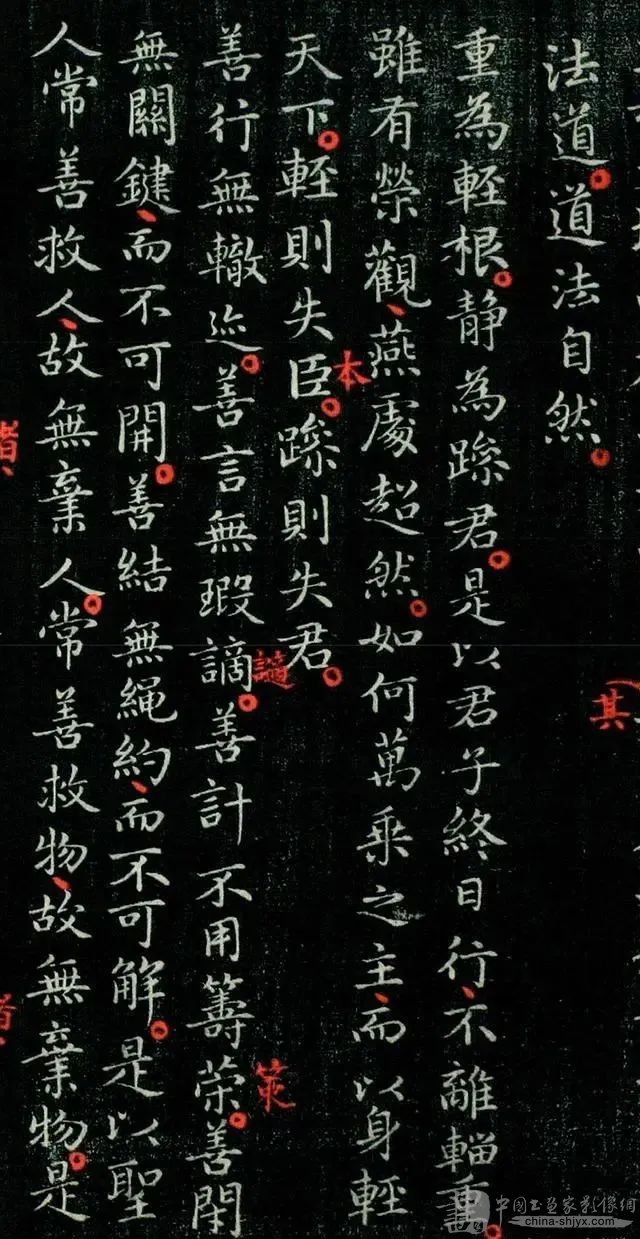 法道。道法自然。
其
重為輕根。静為躁君。是以君子終日行、不離輜重。
雖有榮觀、燕處超然。如何萬乘之主、而以身輕
本
天下。輕則失臣。躁則失君。
善行無轍迹。善言無瑕謫。善計不用籌荣。善閇
無關鍵、而不可開。善結無繩約、而不可解。是以聖
人常善救人、故無棄人。常善救物、故無棄物。是
中国书画家影像網
china-shjyx.com